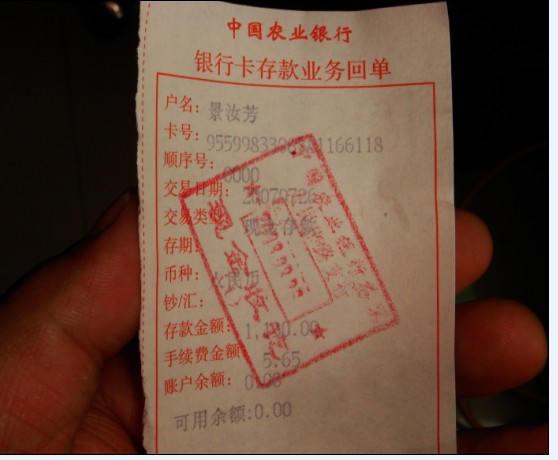 中国农业银行
银行卡存款业务回单
户名：景汝芳
卡号：
顺序号：0000
交易日期：20070726
交易类型：现金存款
存期：
币种：人民币
钞/汇：
存款金额：
手续费金额：5.65
账户余额：0.00
可用余额:0.00
现金收讫